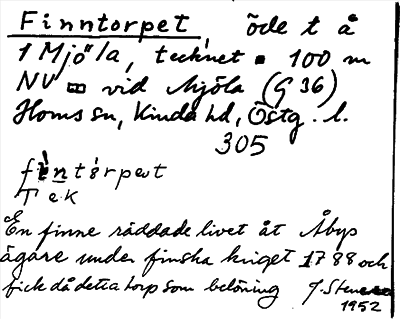 Finntorpet, öde t å
1 Mjöla, tecknet ▪ 100 m
NV ▭ vid Mjöla (G 36)
Horns sn, Kinda hd, Östg. l.
305
fìn̲tórpət
T e.k
En finne räddade livet åt Åbys
ägare under finska kriget 1788 och
fick då detta torp som belöning J. Stene
1952